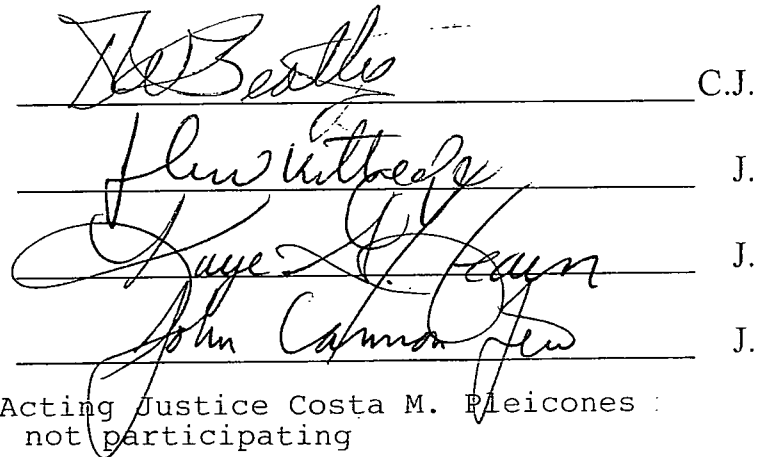 Beatty C.J.
John Kittredge J.
Kaye G. Hearn J.
John Cannon Few J.
Acting Justice Costa M. Pleicones
not participating